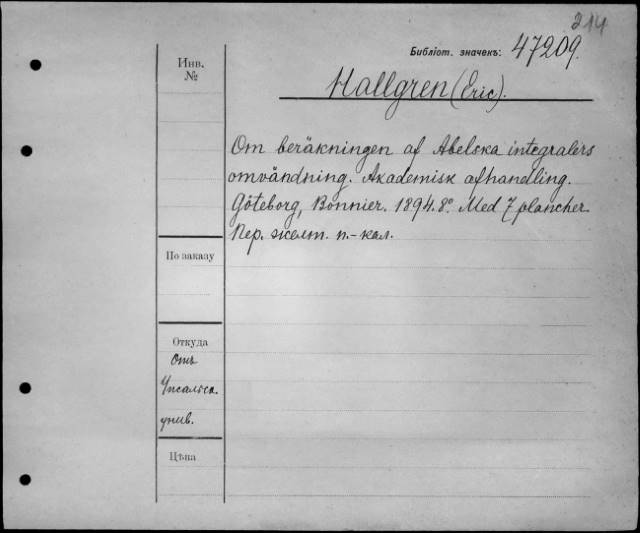 214
Библіот. значекъ: 47209.
Инв.
№
Hallgren (Eric).
Om beräkningen af Abelska integralers
omvändning. Akademisk afhandling.
Göteborg, Bonnier. 1894. 8º. Med 7 plancher.
Пер. желт. п.-кал.
По заказу
Откуда
Отъ
Упсальск.
унив.
Цѣна